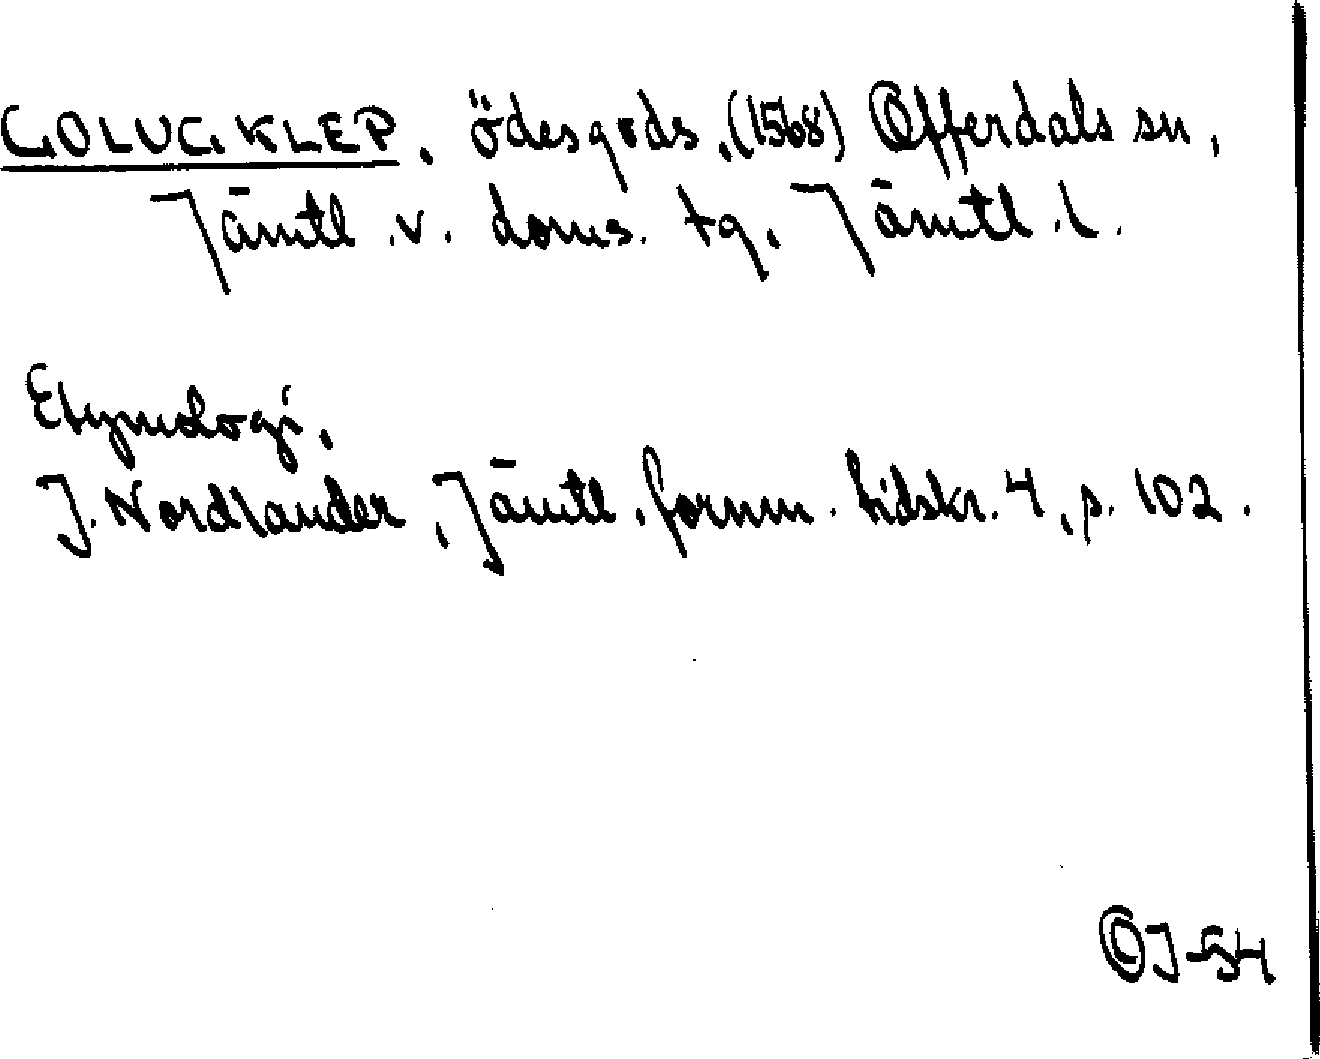 GOLUGKLEP, ödesgods, (1568) Offerdals sn,
Jämtl. v. doms. tg, Jämtl. l.
Etymologi.
J. Nordlander, Jämtl. fornm. tidskr. 4, s. 102.
J-54